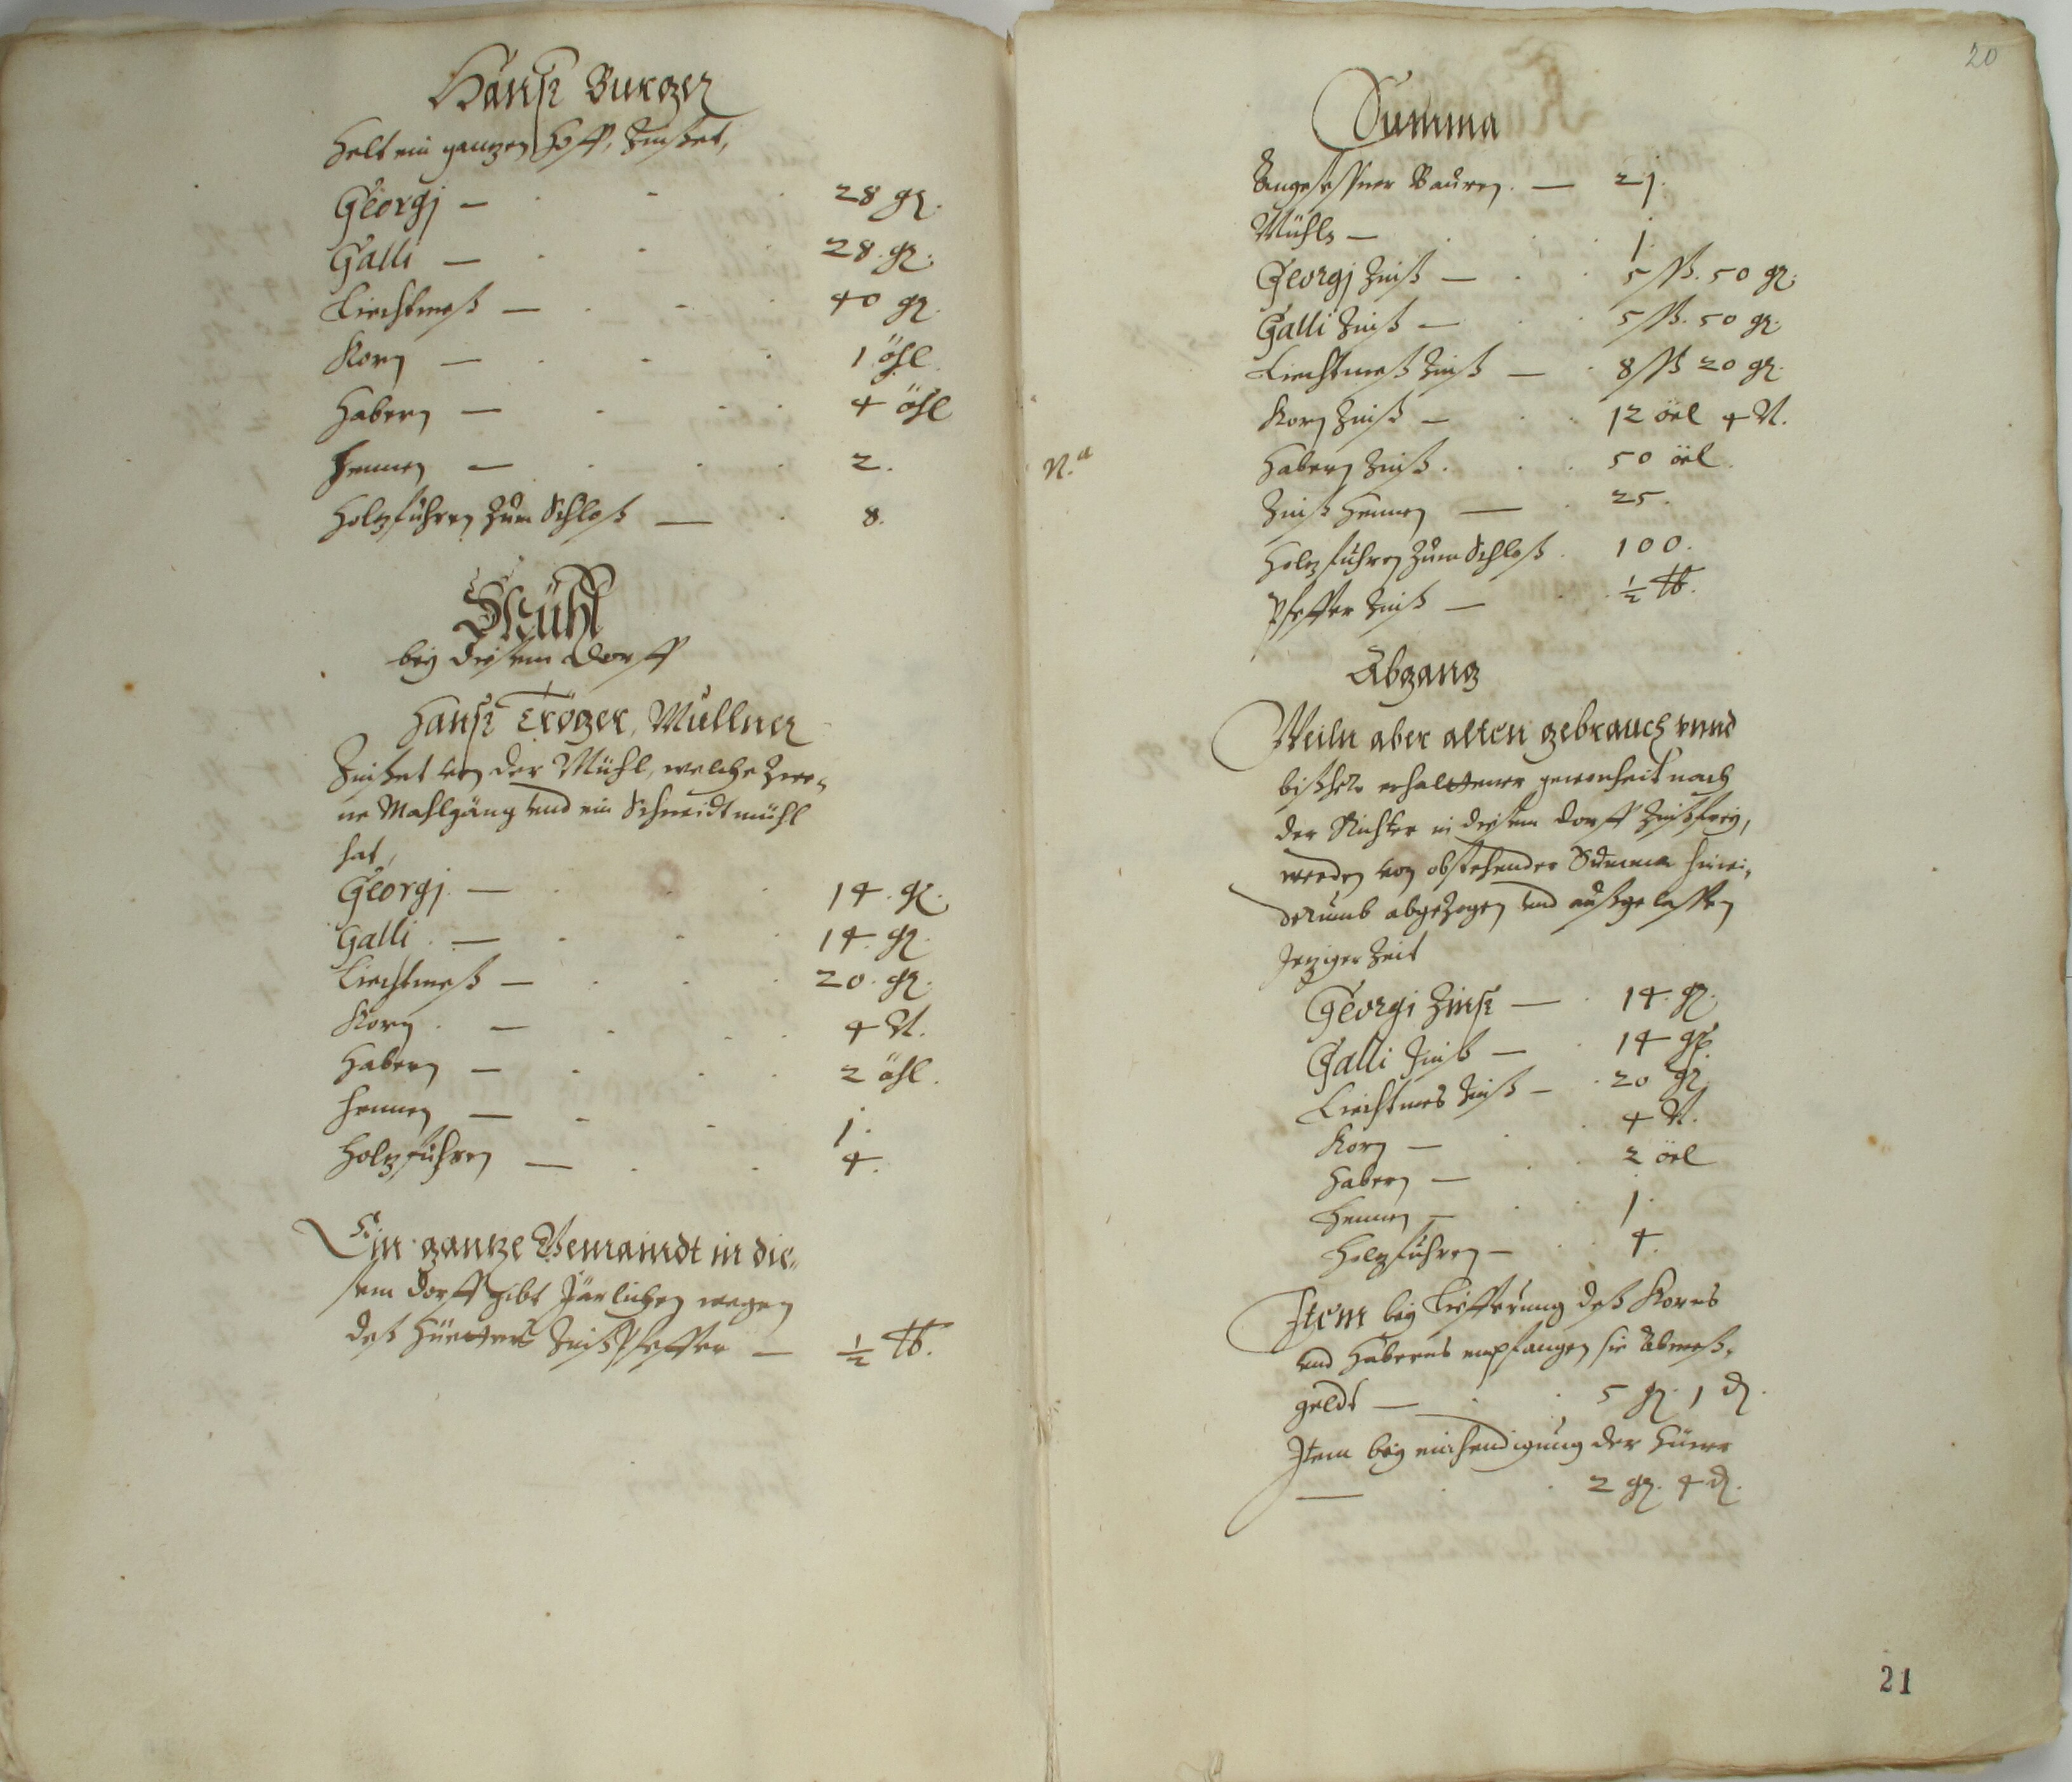 Hanß Burger
Helt ein ganzen Hoff, Zinßet,
Georgj — 28 gr.
Galli — 28. gr.
Liechtmeß — 40 gr.
Korn — 1 öhl.
Habern — 4 öhl
Hennen — 2.
Holzfuhren Zum Schloß — 8.
Mühl
bey diesem Dorff
Hanß Tröger, Müllner
Zinßet von der Mühl, welche Zwe-
ne Mahlgäng vnd ein Schneidtmühl
hat,
Georgj. — 14. gr.
Galli. — 14. gr.
Liechtmeß — 20. gr.
Korn. — 4 N.
Habern — 2 öhl.
Hennen — 1.
Holzfuhren — 4.
Ein ganze Gemaindt in die-
sem Dorff gibt Järlichen wegen
deß Hüetters Zinß Pfeffer — ½ ℔.
20
Summa
Angeseßner Bauren. — 21.
Mühls — 1.
Georgj Zinß — 5 ßß. 50 gr.
Galli Zinß — 5 ßß. 50 gr.
Liechtmeß Zinß — 8 ßß 20 gr.
Korn Zinß — 12 öel 4 N.
N.a Habern Zinß. 50 öel.
Zinß Hennen — 25.
Holzfuhren Zum Schloß. 100.
Pfeffer Zinß — ½ ℔.
Abgang
Weiln aber alten gebrauch vnnd
bißhero erhaltener gewonheit nach
der Richter in diesem Dorff Zinßfrey,
werden von obstehender Summa hinwi-
derumb abgezogen vnd außgelaßen
Jeziger Zeit
Georgi Zinß — 14. gr.
Galli Zinß — 14 gr.
Liechtmes Zinß — 20 gr.
Korn — 4 N.
Habern — 2 öel
Hennen — 1.
Holzfuhren — 4.
Item bey Liefferung deß Korns
vnd Haberns empfangen sie Abmeß-
geldt — 5 gr. 1 d.
Item bey einhendigung der Hüner
— 2 gr. 4 d.
21